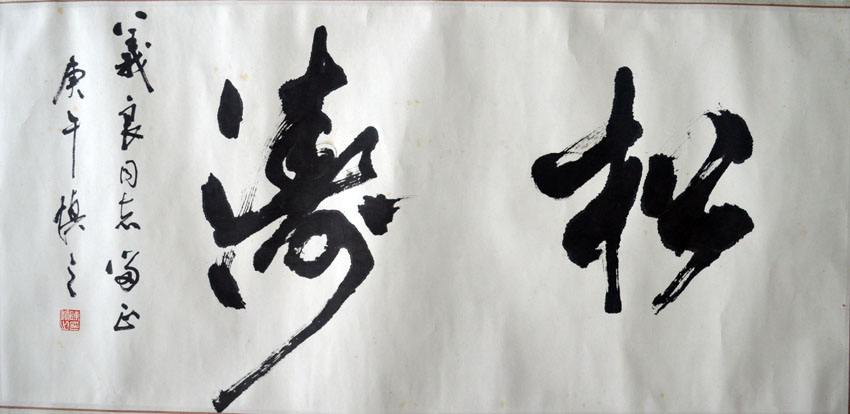 松濤
義良同志留正
庚午慎之